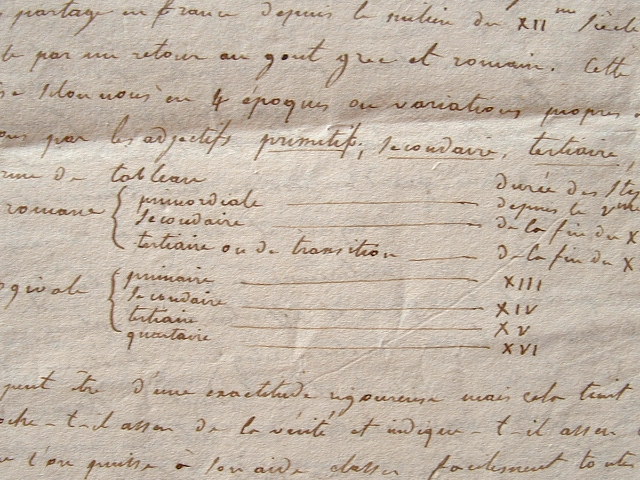 partage en france depuis le milieu du XII me siècle
par un retour au gout grec et romain. Cette
selon nous en 4 époques ou variations propres
par les adjectifs primitif, secondaire, tertiaire,
de tableau
durée des
romane { primordiale — depuis le
secondaire — de la fin du X
tertiaire ou de transition — de la fin du X
ogivale { primaire — XIII
secondaire — XIV
tertiaire — XV
quartaire — XVI
peut être d'une exactitude rigoureuse mais cela tient
-t-il assez de la vérité et indique-t-il assez
l'on puisse à son aide classer facilement toute